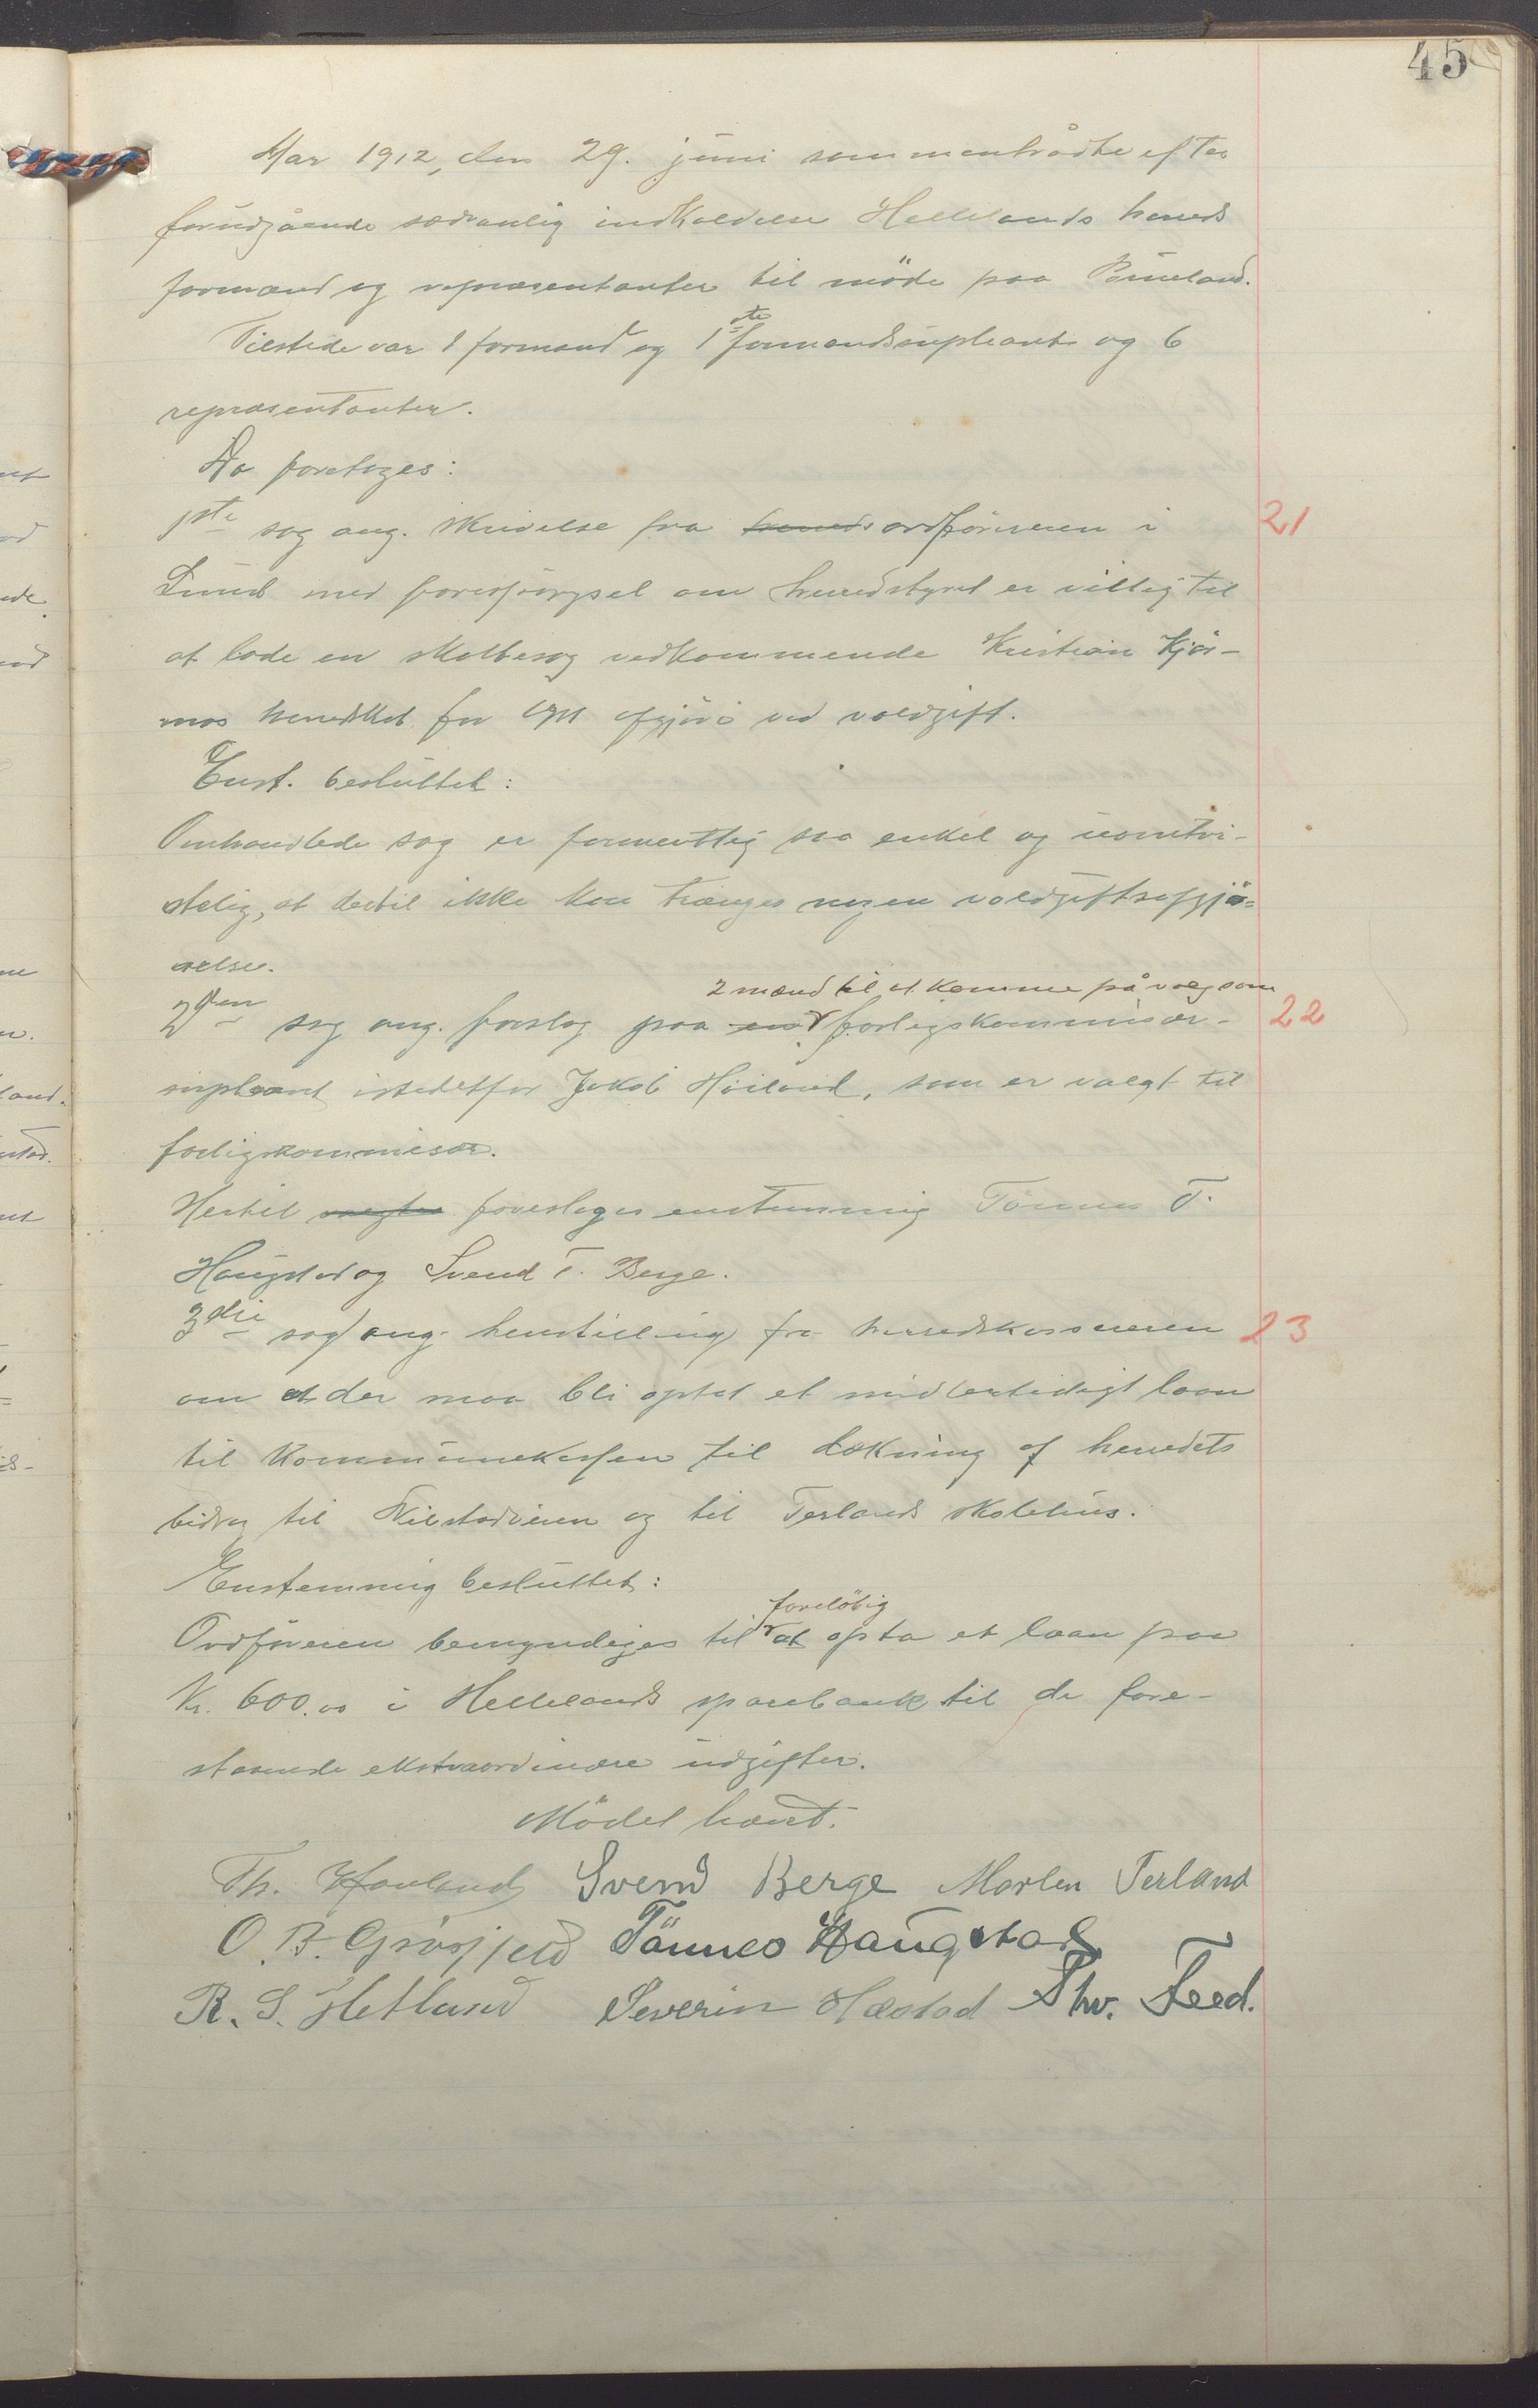 45
Aar 1912, den 29. juni sammentrådte efter
forudgående sædvanlig indkaldelse Hellelands herreds
formænd og repræsentanter til möde paa Bilieland.
Tilstede var 1 formand og 1ste formandssupleant og 6
repræsentanter.
Da foretoges:
1ste sag ang. skrivelse fra herreds ordföreren i 21
Lund med foresporgsel om herredstyret er villig til
at lade en skattesag vedkommende Kristian Kjör-
mos herredskat for 1911 afgjöre ved voldgift.
Enst. besluttet:
Omhandlede sag er formentlig saa enkel og uomtvi-
stelig, at dertil ikke kan trænges nogen voldgiftsafgjö-
relse.
2 mænd til at komme på valg som
2den sag ang. forslag paa en forligskommisær- 22
supleant istedetfor Jakob Höiland, som er valgt til
forligskommisær.
Hertil vægtes foresloges enstemmig Tönnes T.
Haugstad og Svend T. Berge.
3die sag ang. henstilling fra herredskassereren 23
om at der maa bli optat et midlertidigt laan
til kommunekassen til dækning af herredets
bidrag til veien og til Terlands skolehus.
Enstemmig besluttet:
foreløbig
Ordföreren bemyndiges til at opta et laan paa
Kr. 600.00 i Hellelands sparebank til de fore-
staaende ekstraordinære udgifter.
Mödet hævet.
Th. Hovland Svend Berge Marten Terland
O. B. Grösfjeld Tönnes Haugstad
R. S. Hetland Severin Hæstad Thv. Feed.